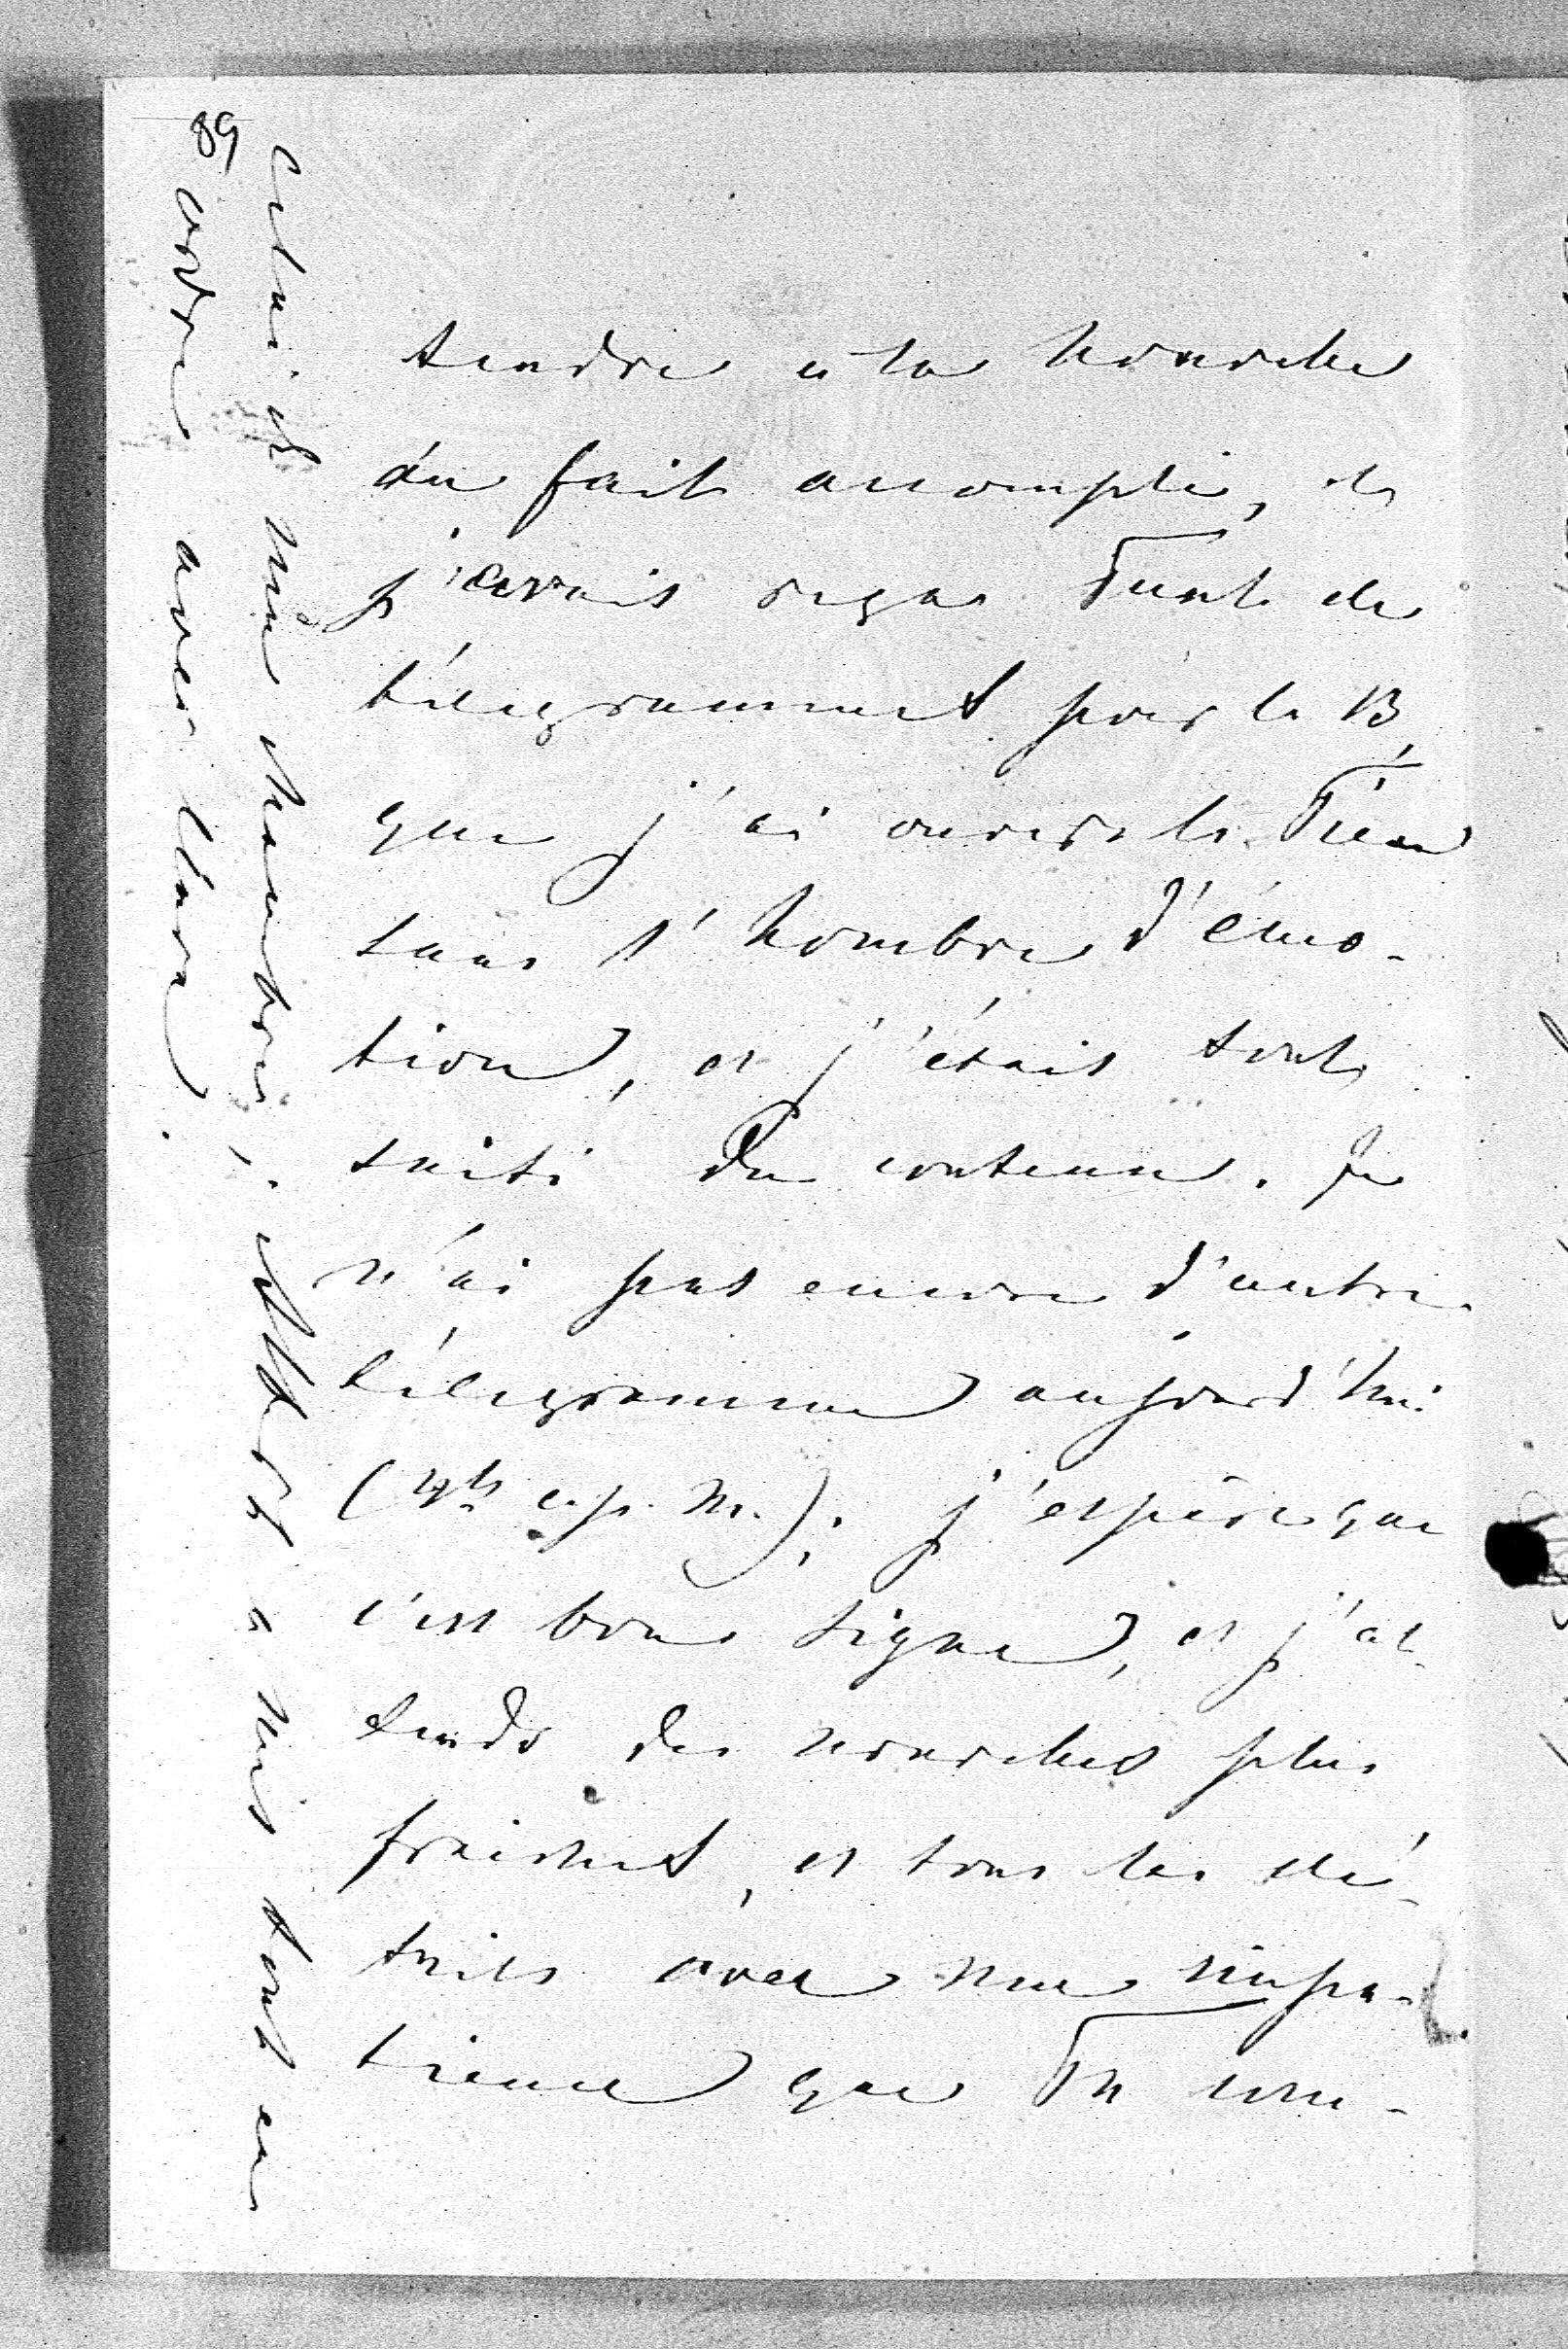 89
tendre à la nouvelle
du fait accompli, et
j'avais reçu tant de
télégrammes pour le 13,
que j'ai ouvert le Tien
sans l'hombre d'émo-
tion, et j'étais tout
saisi du contenu. Je
n'ai pas encore d'autre
télégramme aujourd'hui
(4h a. p. m.); j'espère que
c'est bon signe, et j'at-
tends des nouvelles plus
fraiches, et tous les dé-
tails avec une impa-
tience que Tu com-
chambre, a mis tout en
ordre avec Clara.